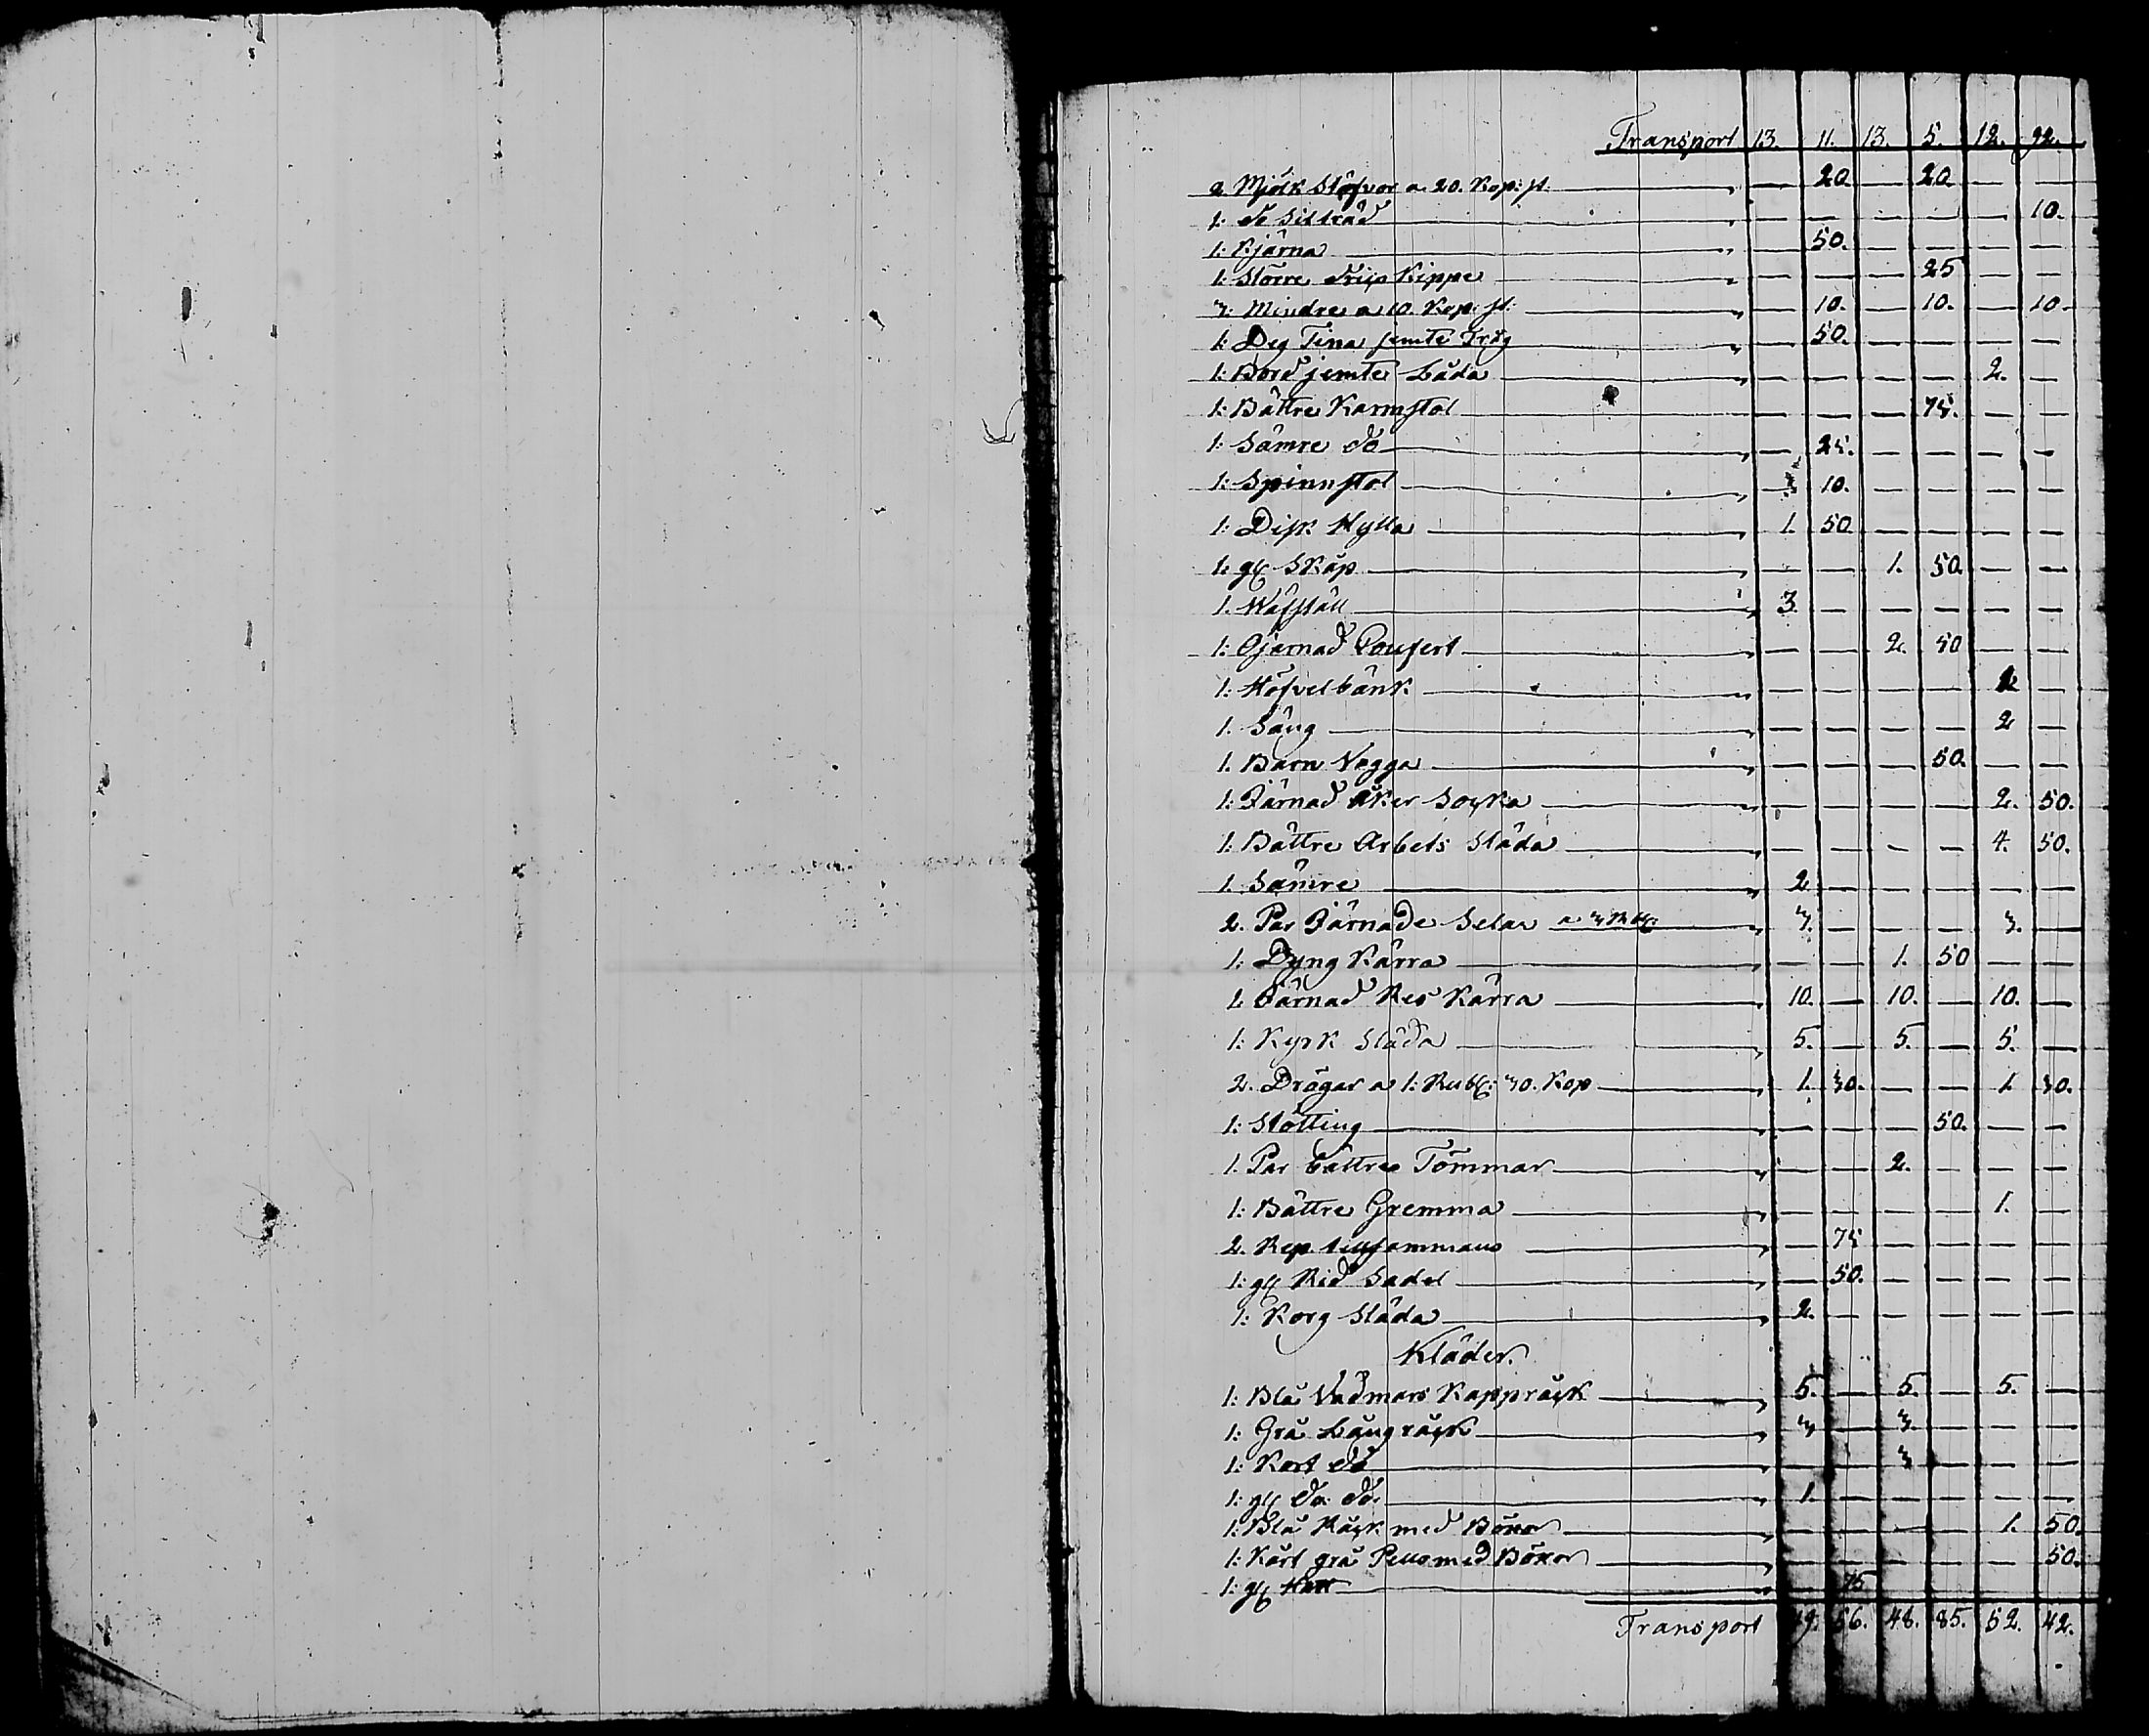 Transport 13. 11. 13. 5. 12. 92.
2 Mjölk Stäfvor a 20. Kop: st. — 20. — 20. — —
1: do Siltråd — — — — — 10.
1: Kjärna — 50. — — — —
1: Större Dricks Kippe — — — 25 — —
3: Mindre a 10. Kop: st: — 10. — 10. — 10.
1: Deg Tina jemte Tråg — 50. — — — —
1: Bord jemte Låda — — — — 2. —
1: Bättre Karmstol — — — 75. — —
1: Sämre do — 25. — — — —
1: Spinnstol — 10. — — — —
1: Disk Hylla 1. 50. — — — —
1: gl Skåp — — 1. 50. — —
1. Wäfställ 3. — — — — —
1: Bjärnad — — 2. 50 — —
1: Höfvelbänk — — — — 2 —
1. Säng — — — — 2 —
1. Barn Vagga — — — 50. — —
1: Järnad Åker Socka — — — — 2. 50.
1: Bättre Arbets Släda — — — — 4. 50.
1. Sämre 2 — — — — —
2. Par Järnade Selar a 3 Rbl: 3. — — — 3. —
1: Dyng Kärra — — 1. 50 — —
1 Järnad Res Kärra 10. — 10. — 10. —
1: Kyrk Släda 5. — 5. — 5. —
2. Drögar a 1: Rubl: 30. Kop 1. 30. — — 1. 30.
1: Stötting — — — 50. — —
1. Par bättre Tömmar — — 2. — — —
1: Bättre Gremma — — — — 1. —
2. Rep tillsammans — 75 — — — —
1: gl Rid Sadel — 50. — — — —
1: Korg Släda 2. — — — — —
Kläder.
1: Blå Vadmars Kappråck 5. — 5. — 5. —
1: Grå Långråck 3 — 3. — — —
1: Kort do — — 3 — — —
1: gl do do. 1. — — — — —
1: Blå Råck med Böxor — — — — 1. 50.
1: Kort grå med Böxor — — — — — 50.
1: gl Hatt — 75
Transport 49. 56. 48. 85. 52. 42.